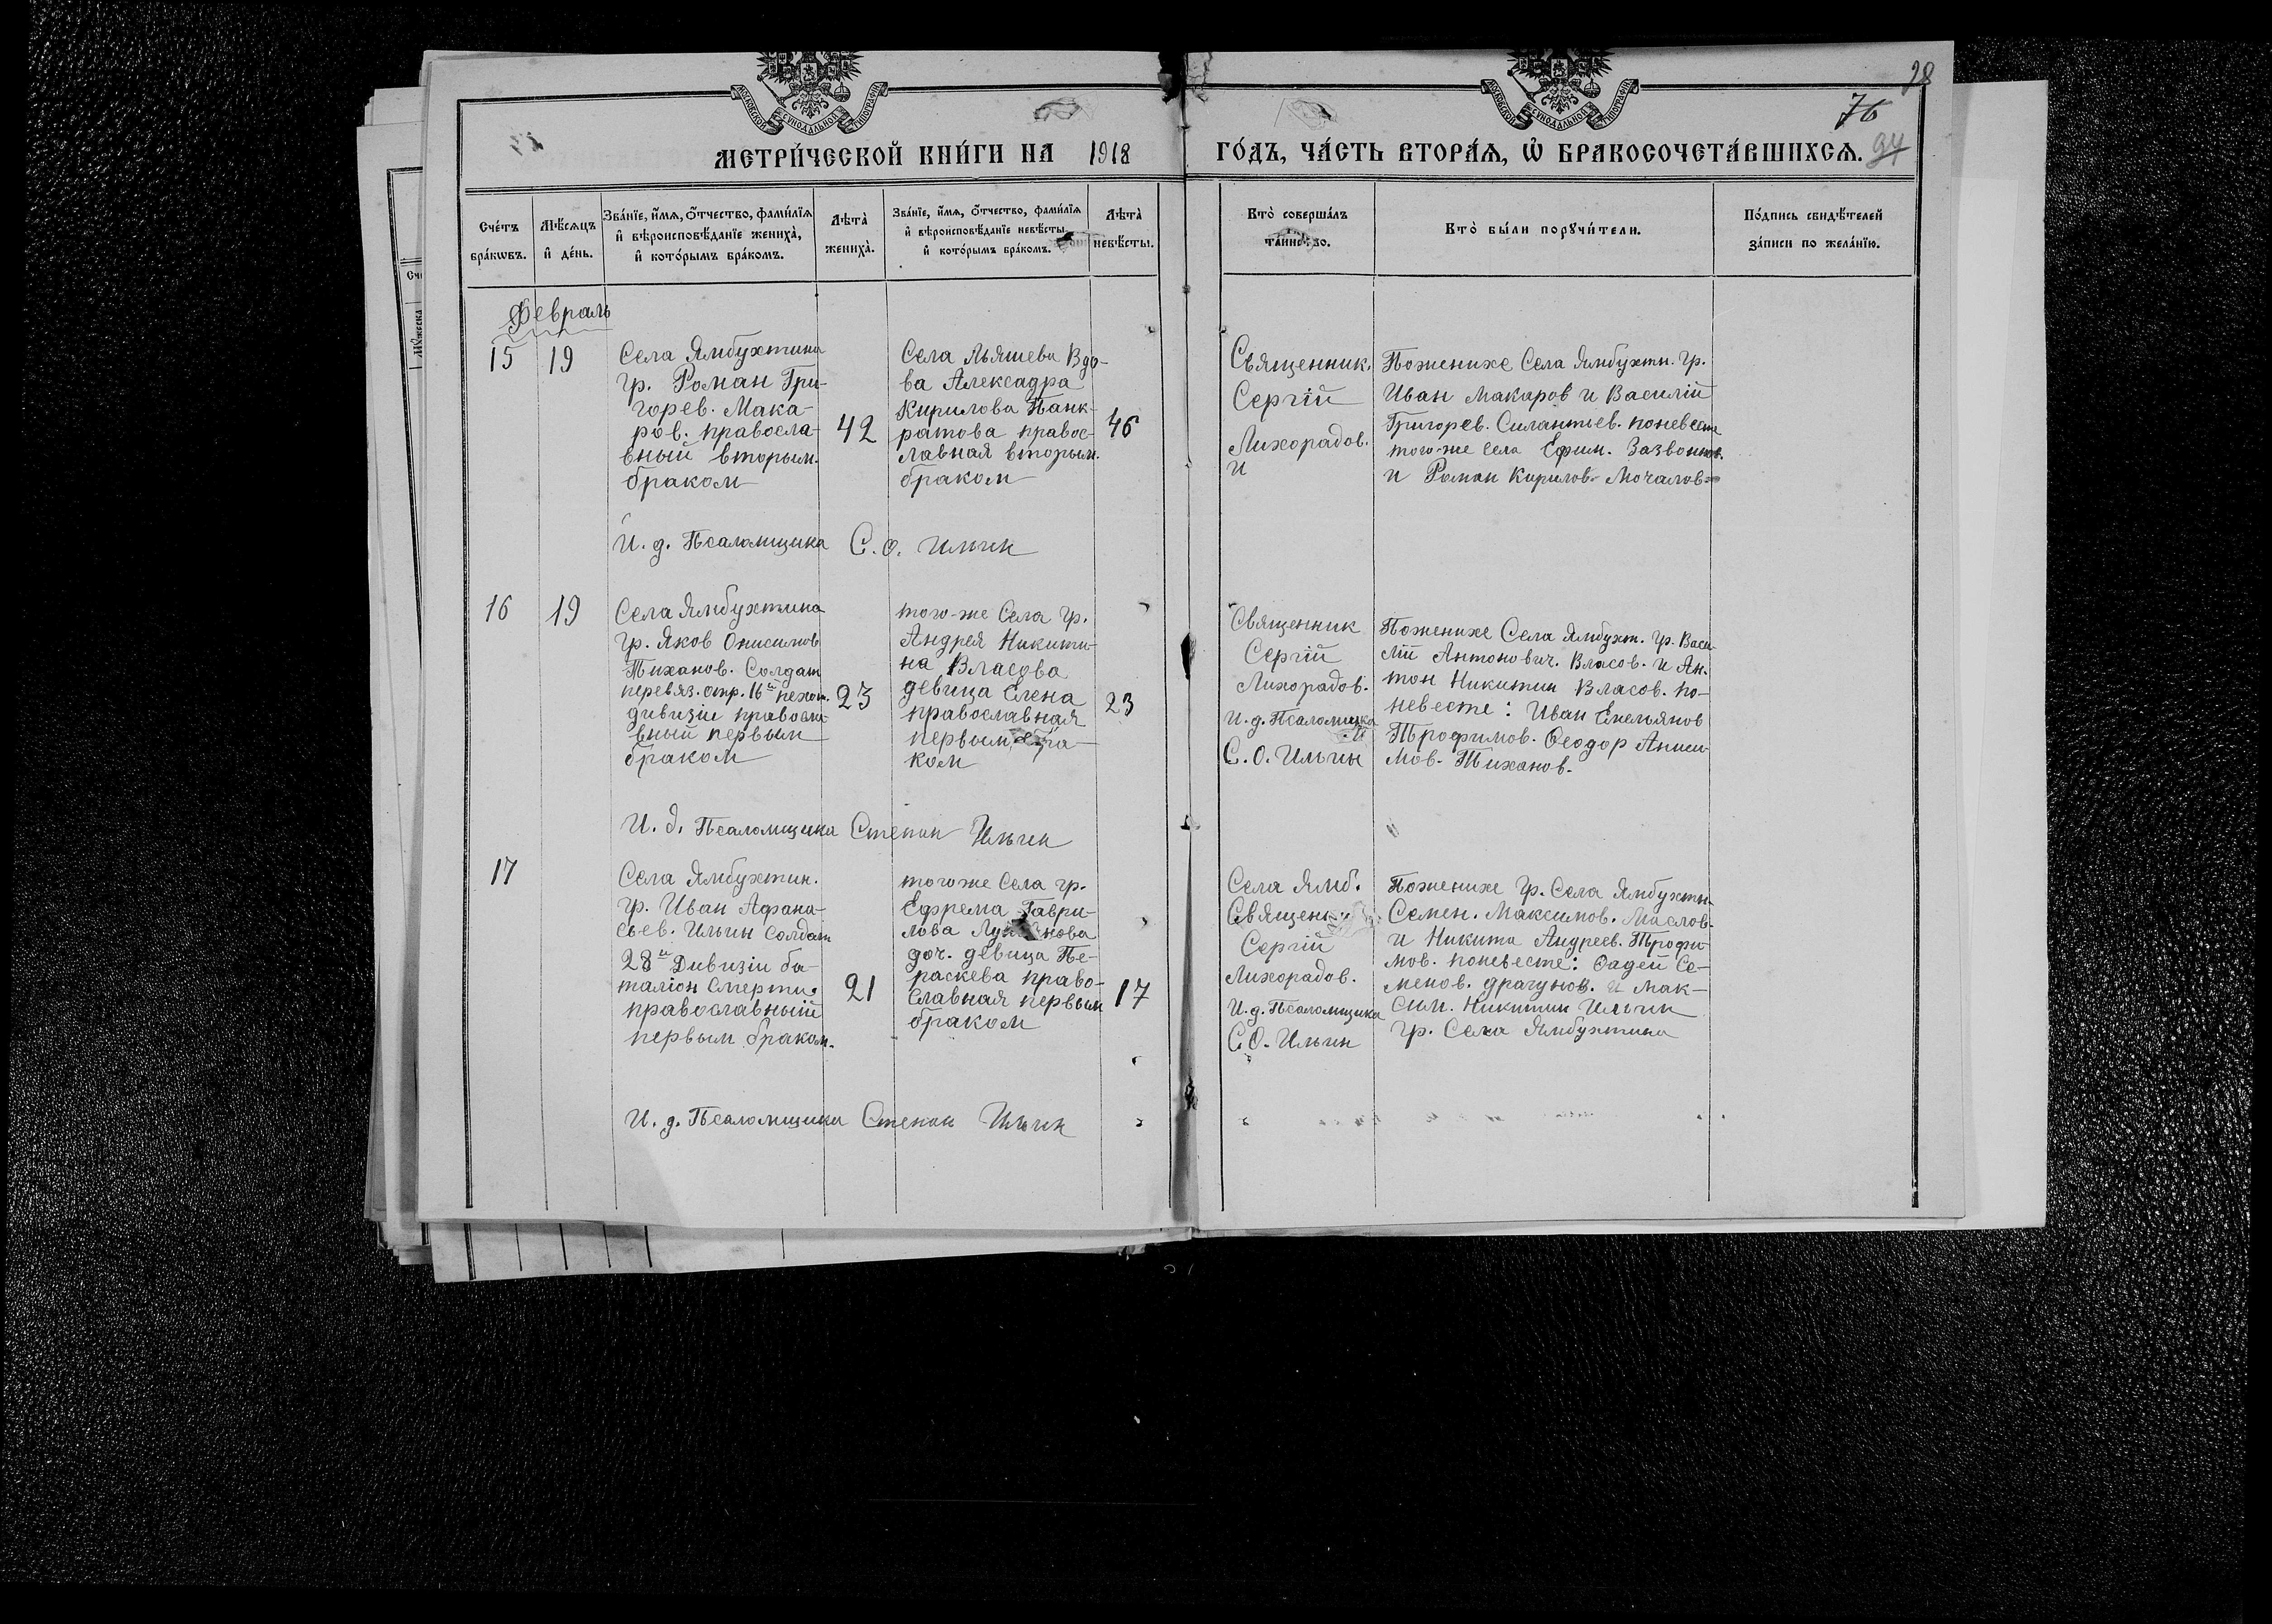 98
76
94
МОСКОВСКОЙ СѴНОДАЛЬНОЙ ТИПОГРАФІИ
МОСКОВСКОЙ СѴНОДАЛЬНОЙ ТИПОГРАФІИ
МЕТРИ́ЧЕСКОЙ КНИ́ГИ НА 1918 ГО́ДЪ, ЧА́СТЬ ВТОРА́Я, Ѡ҆ БРАКОСОЧЕТА́ВШИХСЯ.
Сче́тъ
бра́кѡвъ.
Мѣ́сяцъ
и҆ де́нь.
Зва́нїе, и҆́мя, ѻ҆́тчество, фами́лїя
и҆ вѣроисповѣ́данїе жениха̀,
и҆ кото́рымъ бра́комъ.
Лѣ́та
жениха̀.
Зва́нїе, и҆́мя, ѻ҆́тчество, фами́лїя
и҆ вѣроисповѣ́данїе невѣ́сты,
и҆ кото́рымъ бра́комъ.
Лѣ́та
невѣ́сты.
Кто̀ соверша́лъ
та́инство.
Кто̀ бы́ли порꙋчи́тели.
По́дпись свидѣ́телей
за́писи по жела́нїю.
Февраль
15
19
Села Ямбухтина
гр. Роман Гри-
горев. Мака-
ров. правосла-
вный вторым.
браком
42
Села Льяшева Вдо-
ва Алексадра
Кирилова Панк-
ратова правос-
лавная вторым.
браком
46
Священник.
Сергiй
Лихорадов.
и
Поженихе Села Ямбухти. гр.
Иван Макаров и Василiй
Григорев. Силантьев. поневесте
того-же села Ефим. Зазвонов.
и Роман Кирилов. Мочалов
И. д. Псаломщика С. О. Ильин
16
19
Села Ямбухтина
гр. Яков Онисимов
Тиханов. Солдат
перевяз. отр. 16й пехот.
дивизiи правосла-
вный первым
браком
23
того-же Села гр.
Андрея Никити-
на Власова
девица Елена
православная
первым бра-
ком
23
Священник
Сергiй
Лихорадов.
И. д. Псаломщика
С. О. Ильин
Поженихе Села Ямбухт. гр. Васи-
лiй Антонович. Власов. и Ан-
тон Никитин Власов. по-
невесте: Иван Емельянов
Трофимов. Феодор Аниси-
мов. Тиханов.
И. д. Псаломщика Степан Ильин
17
Села Ямбухтин.
гр. Иван Афана-
сьев. Ильин солдат
28й Дивизiи ба-
талiон Смерти.
православный
первым браком.
21
тогоже Села гр.
Ефрема Гаври-
лова
доч. девица Пе-
раскева право-
славная первым
браком
17
Села Ямб.
Священ
Сергiй
Лихорадов.
И. д. Псаломщика
С. О. Ильин
Поженихе гр. Села Ямбухти-
Семен. Максимов. Маслов.
и Никита Андреев. Трофи-
мов. поневесте: Фадей Се-
менов. драгунов. и Мак-
сим. Никитин Ильин
гр. Села Ямбухтина
И. д. Псаломщика Степан Ильин